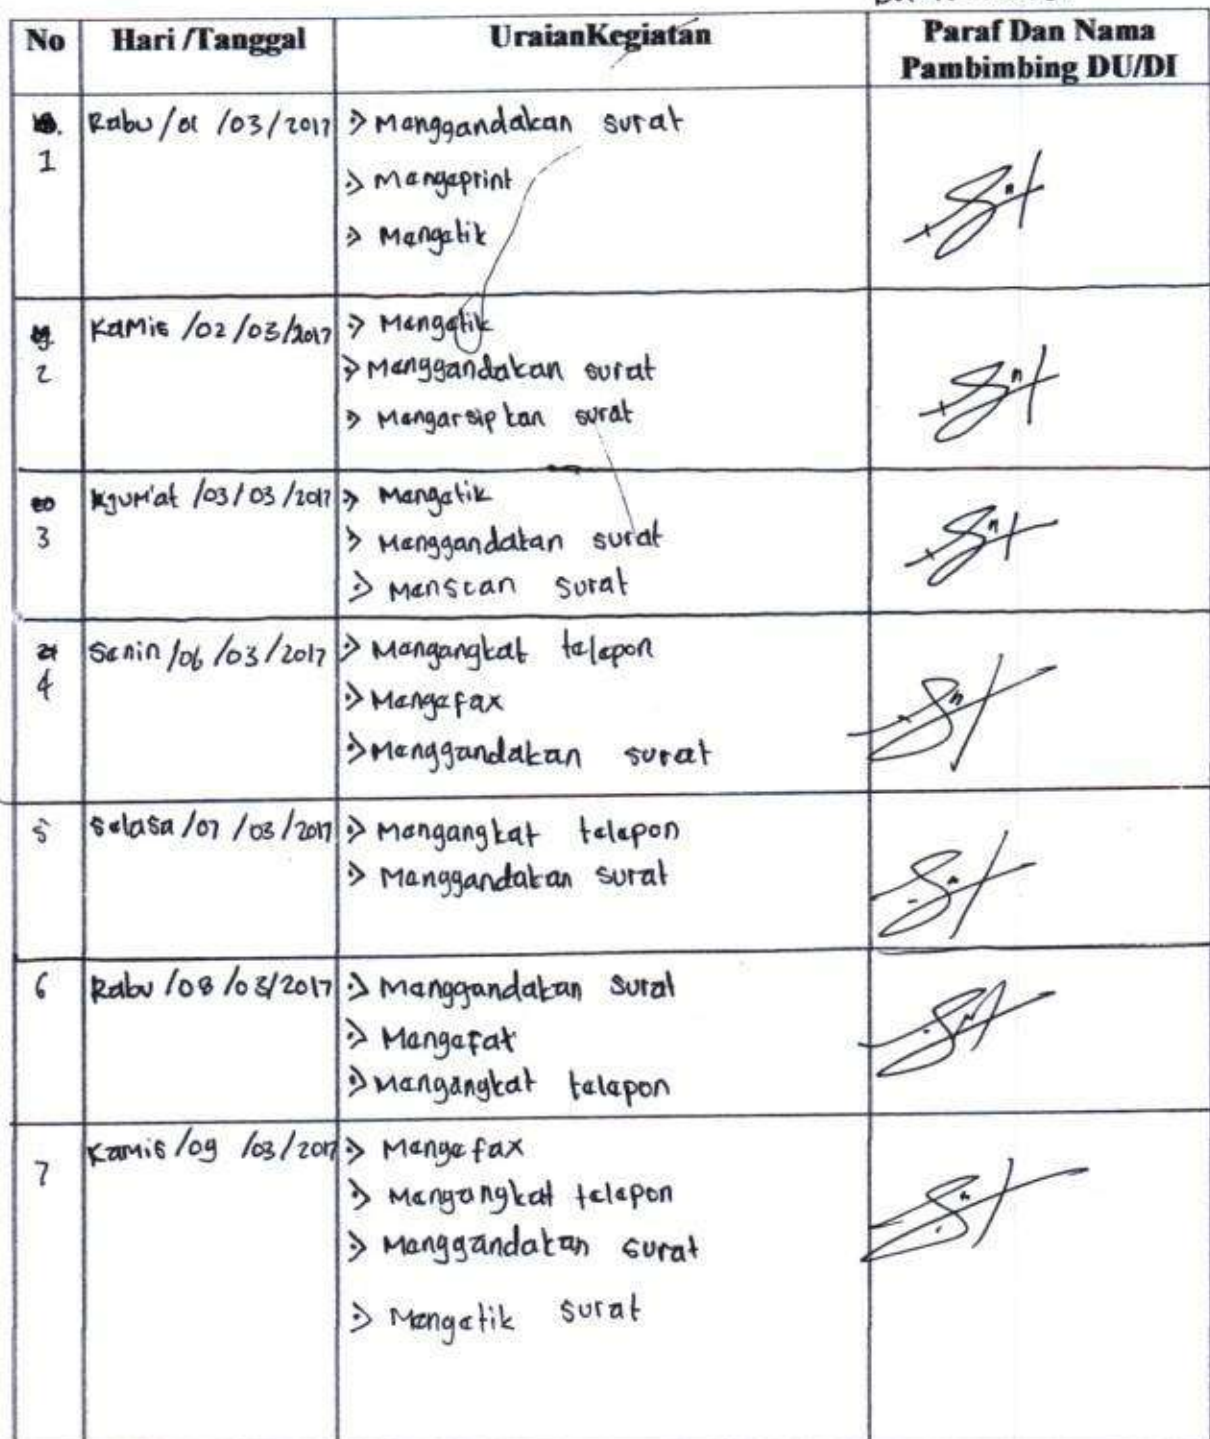 No Hari /Tanggal UraianKegiatan Paraf Dan Nama
Pambimbing DU/DI
1 Rabu /01 /03/2017 Menggandakan surat
Mengeprint
Mengetik
2 Kamis /02/03/2017 Mengetik
Menggandakan surat
Mengarsipkan surat
3 Jum'at /03/03/2017 Mengetik
Menggandakan surat
Menscan surat
4 Senin /06/03/2017 Mengangkat telepon
Mengefax
Menggandakan surat
5 Selasa /07/03/2017 Mengangkat telepon
Menggandakan surat
6 Rabu /08/03/2017 Menggandakan surat
Mengefax
Mengangkat telepon
7 Kamis /09/03/2017 Mengefax
Mengangkat telepon
Menggandakan surat
Mengetik surat